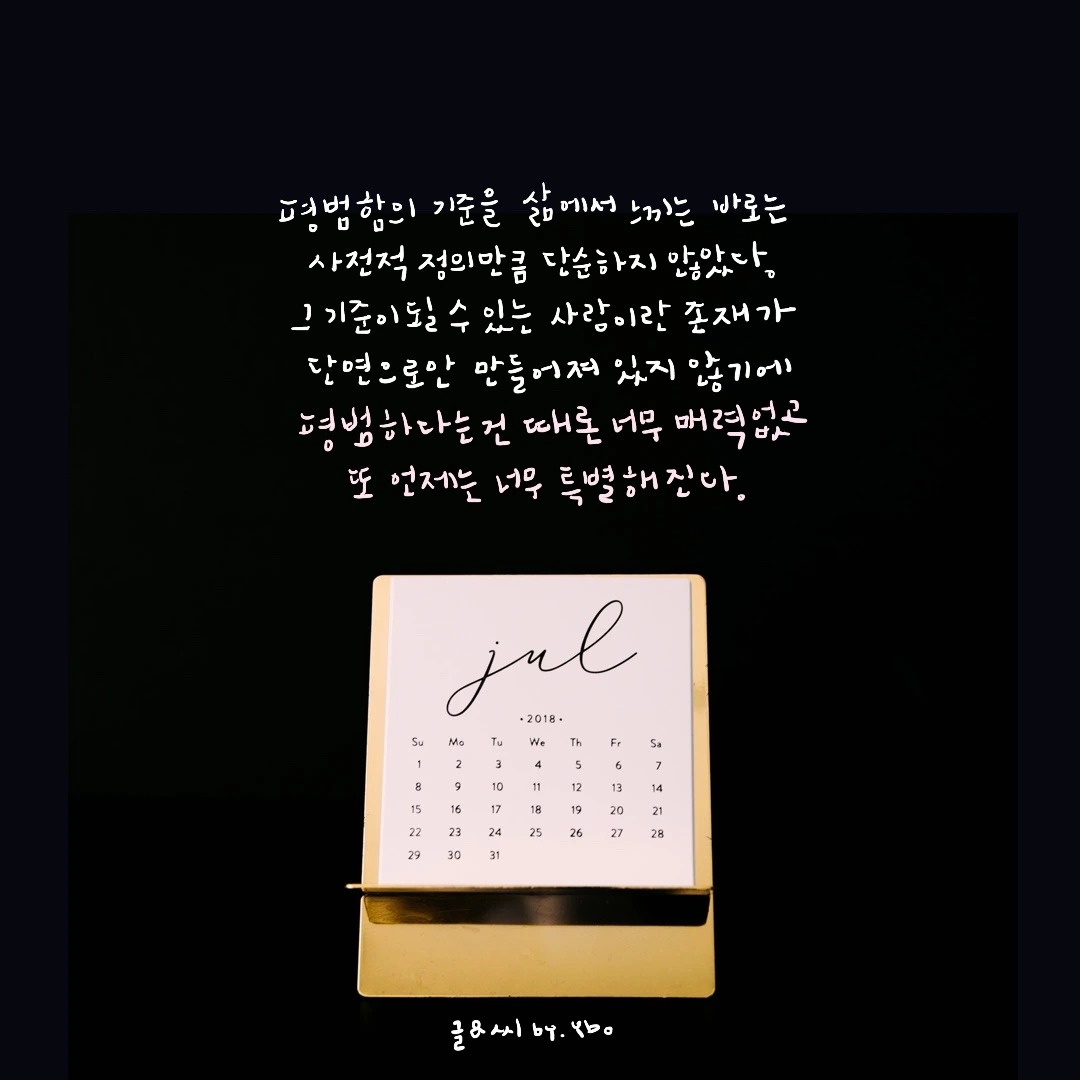 평범함의 기준을 삶에서 느끼는 바로는
사전적 정의만큼 단순하지 않았다.
그 기준이 될 수 있는 사람이란 존재가
단면으로만 만들어져 있지 않기에
평범하다는건 때론 너무 매력없고
또 언제는 너무 특별해진다.
jul
•2018•
Su Mo Tu We Th Fr Sa
1 2 3 4 5 6 7
8 9 10 11 12 13 14
15 16 17 18 19 20 21
22 23 24 25 26 27 28
29 30 31
글&씨 by. Ybo